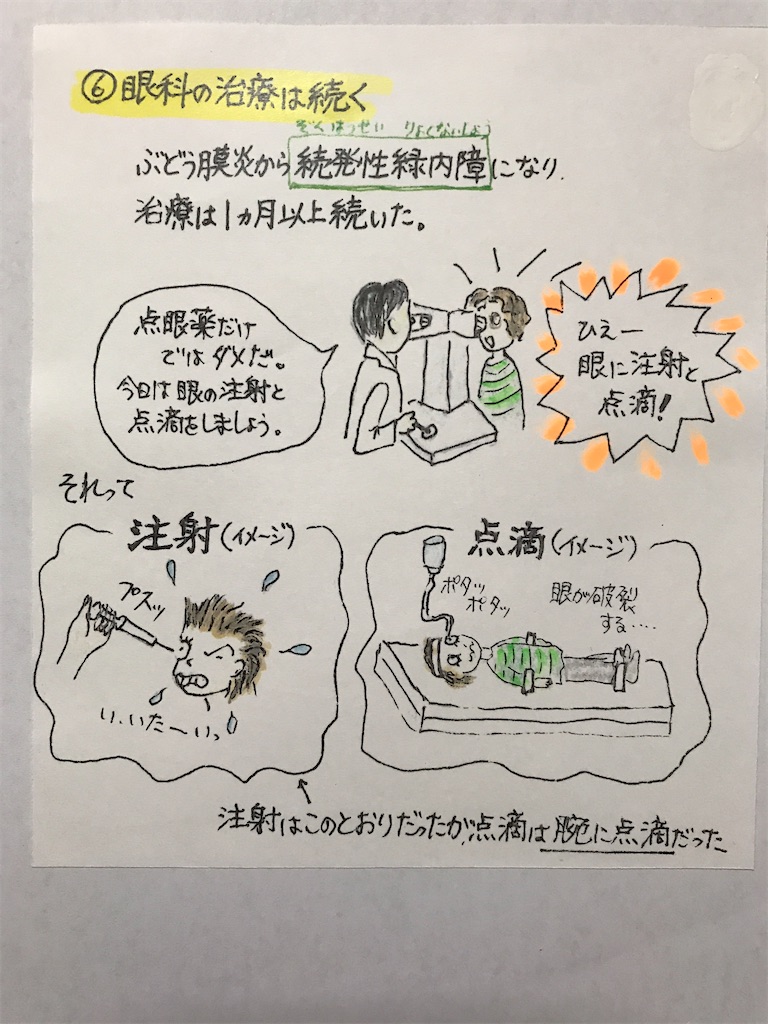 ⑥眼科の治療は続く
ぞくはっせい りょくないしょう
ぶどう膜炎から続発性緑内障になり、
治療は1ヵ月以上続いた。
点眼薬だけ
ではダメだ。
今日は眼の注射と
点滴をしましょう。
ひえー
眼に注射と
点滴!
それって
注射(イメージ)
プスッ
い、いたーいっ
点滴(イメージ)
ポタッ
ポタッ
眼が破裂
する....
注射はこのとおりだったが、点滴は腕に点滴だった